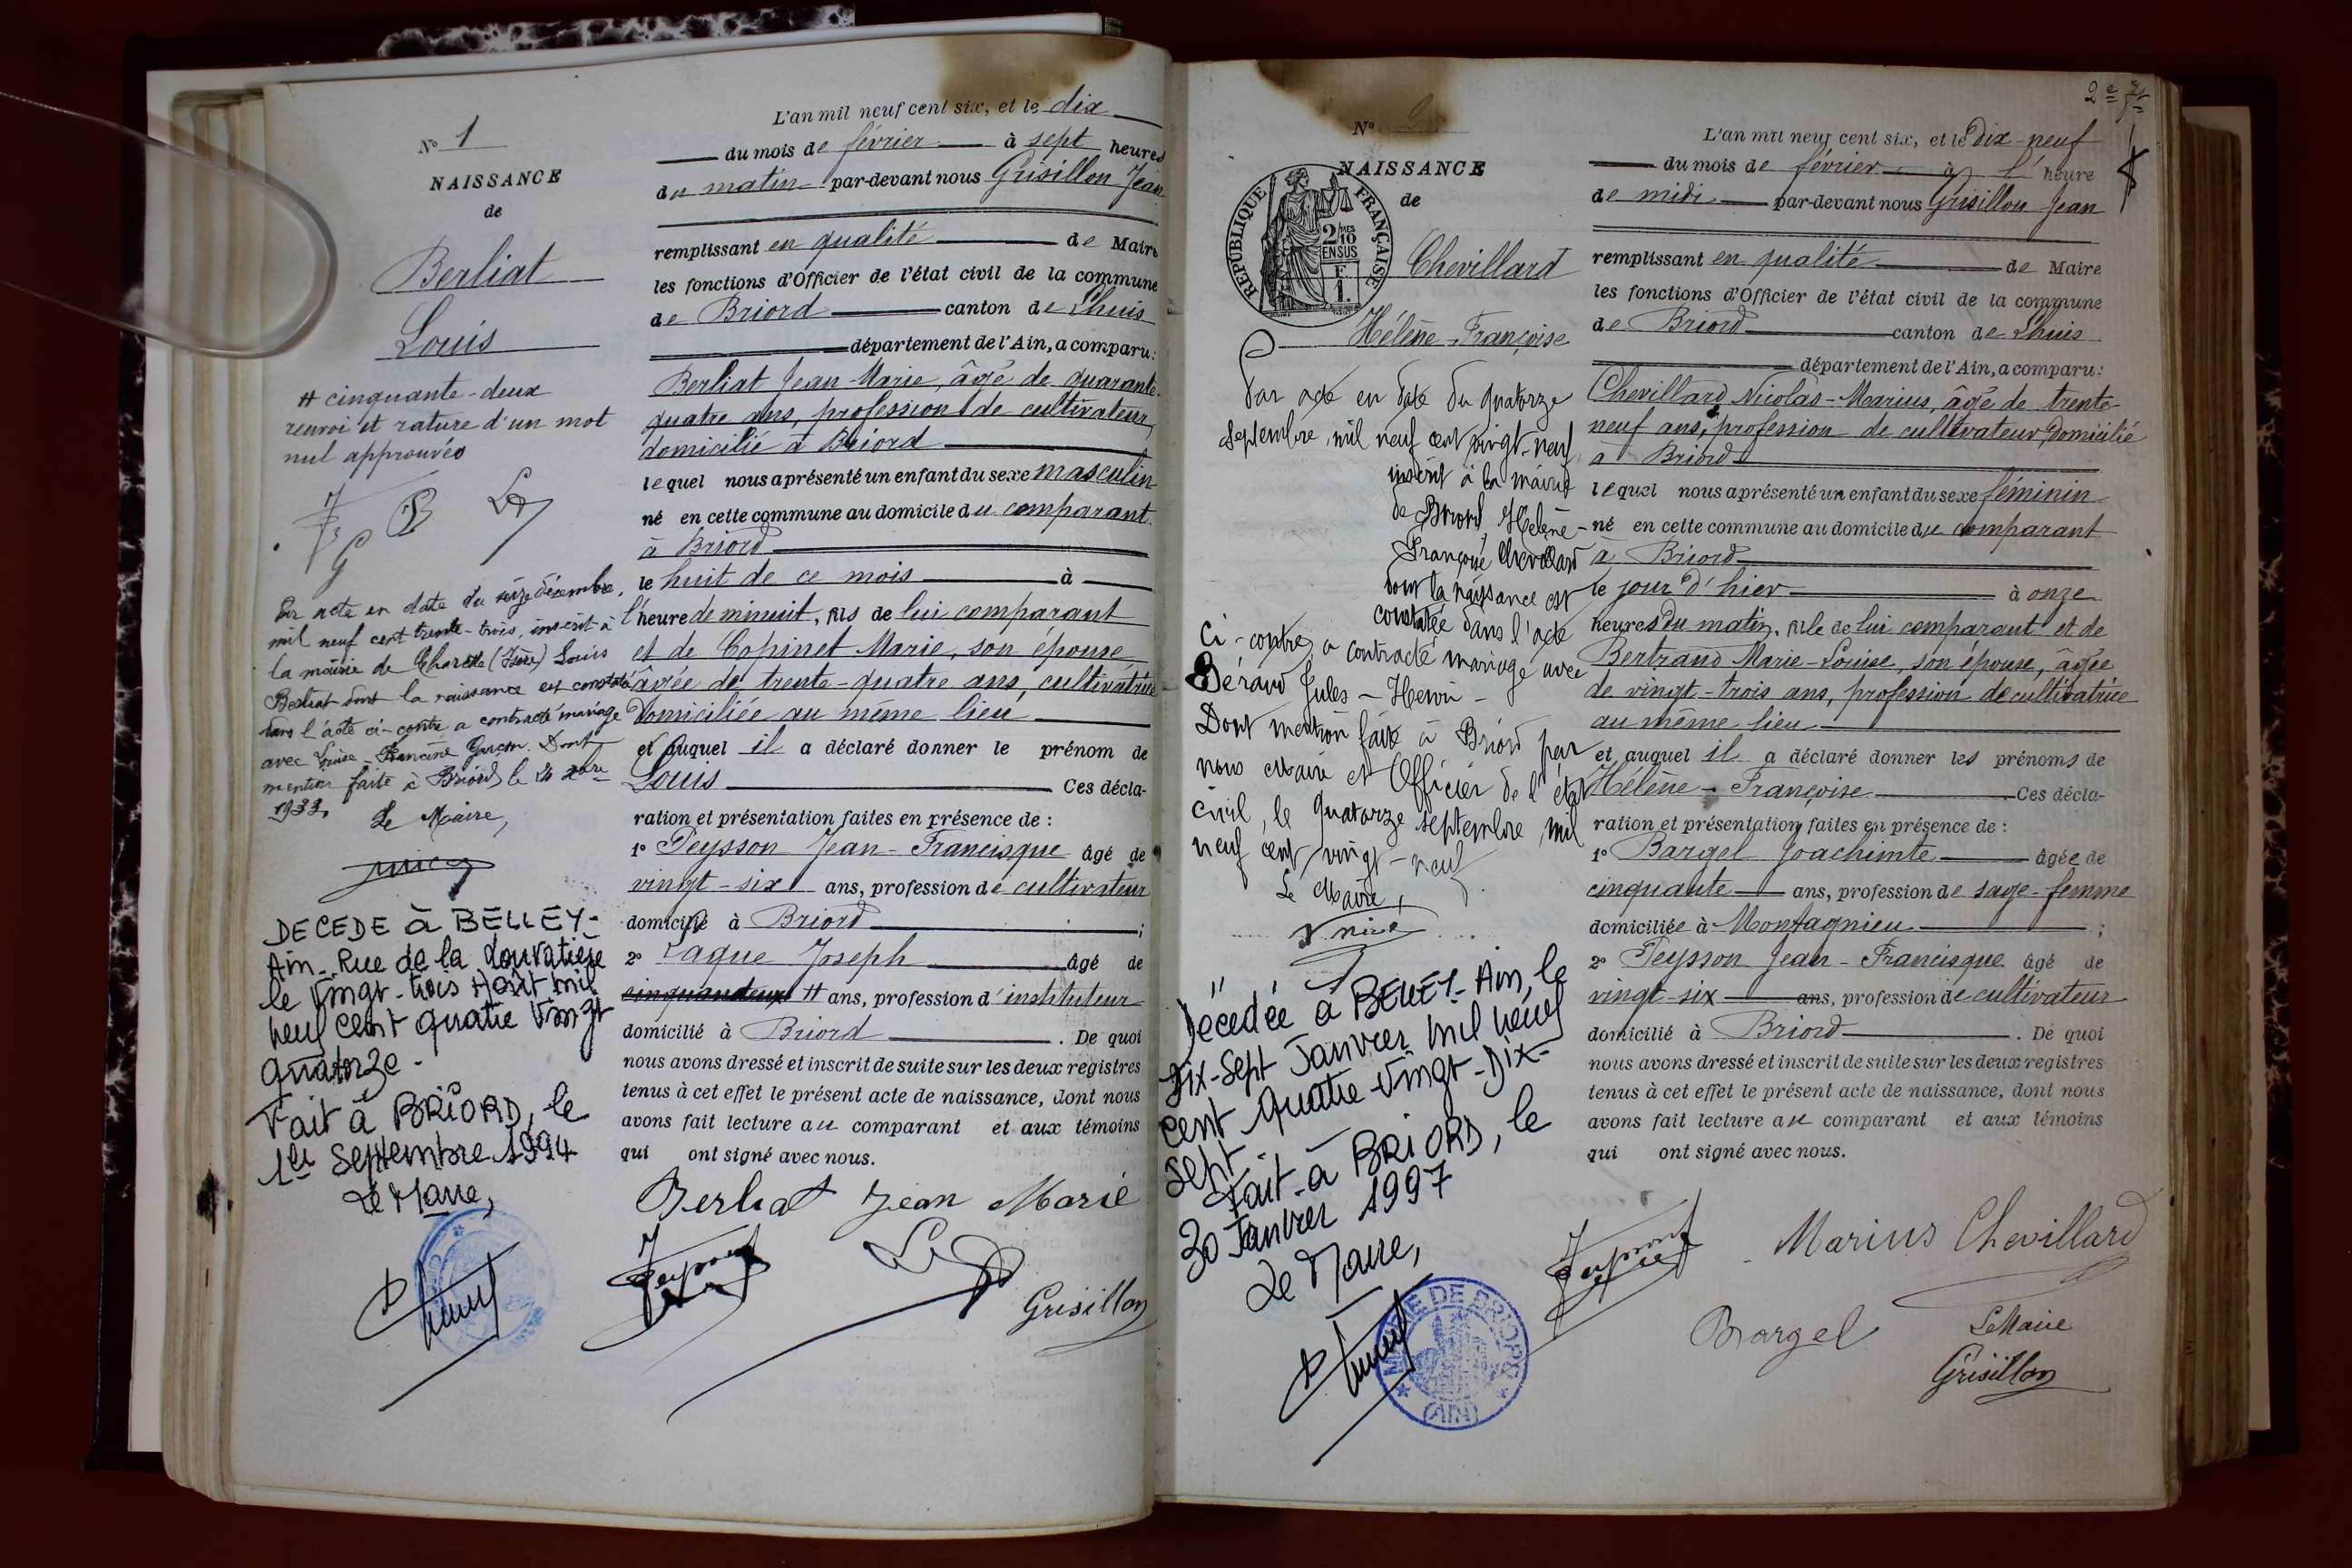 N° 1
NAISSANCE
de
Berliat
Louis
# cinquante-deux
renvoi et rature d'un mot
nul approuvés
Par acte en date du seize décembre,
mil neuf cent trente-trois, inscrit à
la mairie de (Isère) Louis
Berliat dont la naissance est constatée
dans l'acte ci-contre a contracté mariage
avec Louise-Francine Dont
mention faite à Briord, le
1933.
Le Maire,
DECEDE à BELLEY-
Ain-Rue de la
le Vingt-trois Août mil
neuf cent quatre Vingt
quatorze-
Fait à BRIORD, le
1er Septembre 1994
Le Maire,
L'an mil neuf cent six, et le dix
du mois de février à sept heures
du matin par-devant nous Grisillon Jean
remplissant en qualité de Maire
les fonctions d'Officier de l'état civil de la commune
de Briord canton de Lhuis
département de l'Ain, a comparu:
Berliat Jean-Marie, âgé de quarante-
quatre ans, profession de cultivateur,
domicilié à Briord
lequel nous a présenté un enfant du sexe masculin
né en cette commune au domicile du comparant
à Briord
le huit de ce mois à
l'heure de minuit, fils de lui comparant
et de Copinet Marie, son épouse
âgée de trente-quatre ans, cultivatrice
domiciliée au même lieu
et auquel il a déclaré donner le prénom de
Louis Ces décla-
ration et présentation faites en présence de :
1° Peysson Jean-Francisque âgé de
vingt-six ans, profession de cultivateur
domicilié à Briord ;
2° Joseph âgé de
# ans, profession d'instituteur
domicilié à Briord . De quoi
nous avons dressé et inscrit de suite sur les deux registres
tenus à cet effet le présent acte de naissance, dont nous
avons fait lecture au comparant et aux témoins
qui ont signé avec nous.
Berliat Jean Marie
Grisillon
2e
N° 2
NAISSANCE
de
REPUBLIQUE FRANÇAISE
2/10 MES
EN SUS
F
1.
Chevillard
Hélène-Françoise
Par acte en date du quatorze
septembre mil neuf cent vingt-neuf
inscrit à la mairie
de Briord, Hélène-
Françoise Chevillard
dont la naissance est
constatée dans l'acte
ci-contre, a contracté mariage avec
Béraud Jules-Henri-
Dont mention faite à Briord par
nous Maire et Officier de l'état
civil, le quatorze septembre mil
neuf cent vingt-neuf
Le Maire,
Décédée à BELLEY-Ain, le
Dix-Sept Janvier mil neuf
cent quatre-Vingt-Dix-
Sept-
Fait à BRIORD, le
30 Janvier 1997
Le Maire,
MAIRIE DE BRIORD
(AIN)
L'an mil neuf cent six, et le dix-neuf
du mois de février à l' heure
de midi par-devant nous Grisillon Jean
remplissant en qualité de Maire
les fonctions d'Officier de l'état civil de la commune
de Briord canton de Lhuis
département de l'Ain, a comparu:
Chevillard Nicolas-Marius, âgé de trente-
neuf ans, profession de cultivateur, domicilié
à Briord
lequel nous a présenté un enfant du sexe féminin
né en cette commune au domicile du comparant
à Briord
le jour d'hier à onze
heures du matin, fille de lui comparant et de
Bertrand Marie-Louise, son épouse, âgée
de vingt-trois ans, profession de cultivatrice
au même lieu
et auquel il a déclaré donner les prénoms de
Hélène-Françoise Ces décla-
ration et présentation faites en présence de :
1° Bargel Joachimte âgée de
cinquante ans, profession de sage-femme
domiciliée à Montagnieu ;
2° Peysson Jean-Francisque âgé de
vingt-six ans, profession de cultivateur
domicilié à Briord . De quoi
nous avons dressé et inscrit de suite sur les deux registres
tenus à cet effet le présent acte de naissance, dont nous
avons fait lecture au comparant et aux témoins
qui ont signé avec nous.
Marius Chevillard
Bargel
Le Maire
Grisillon